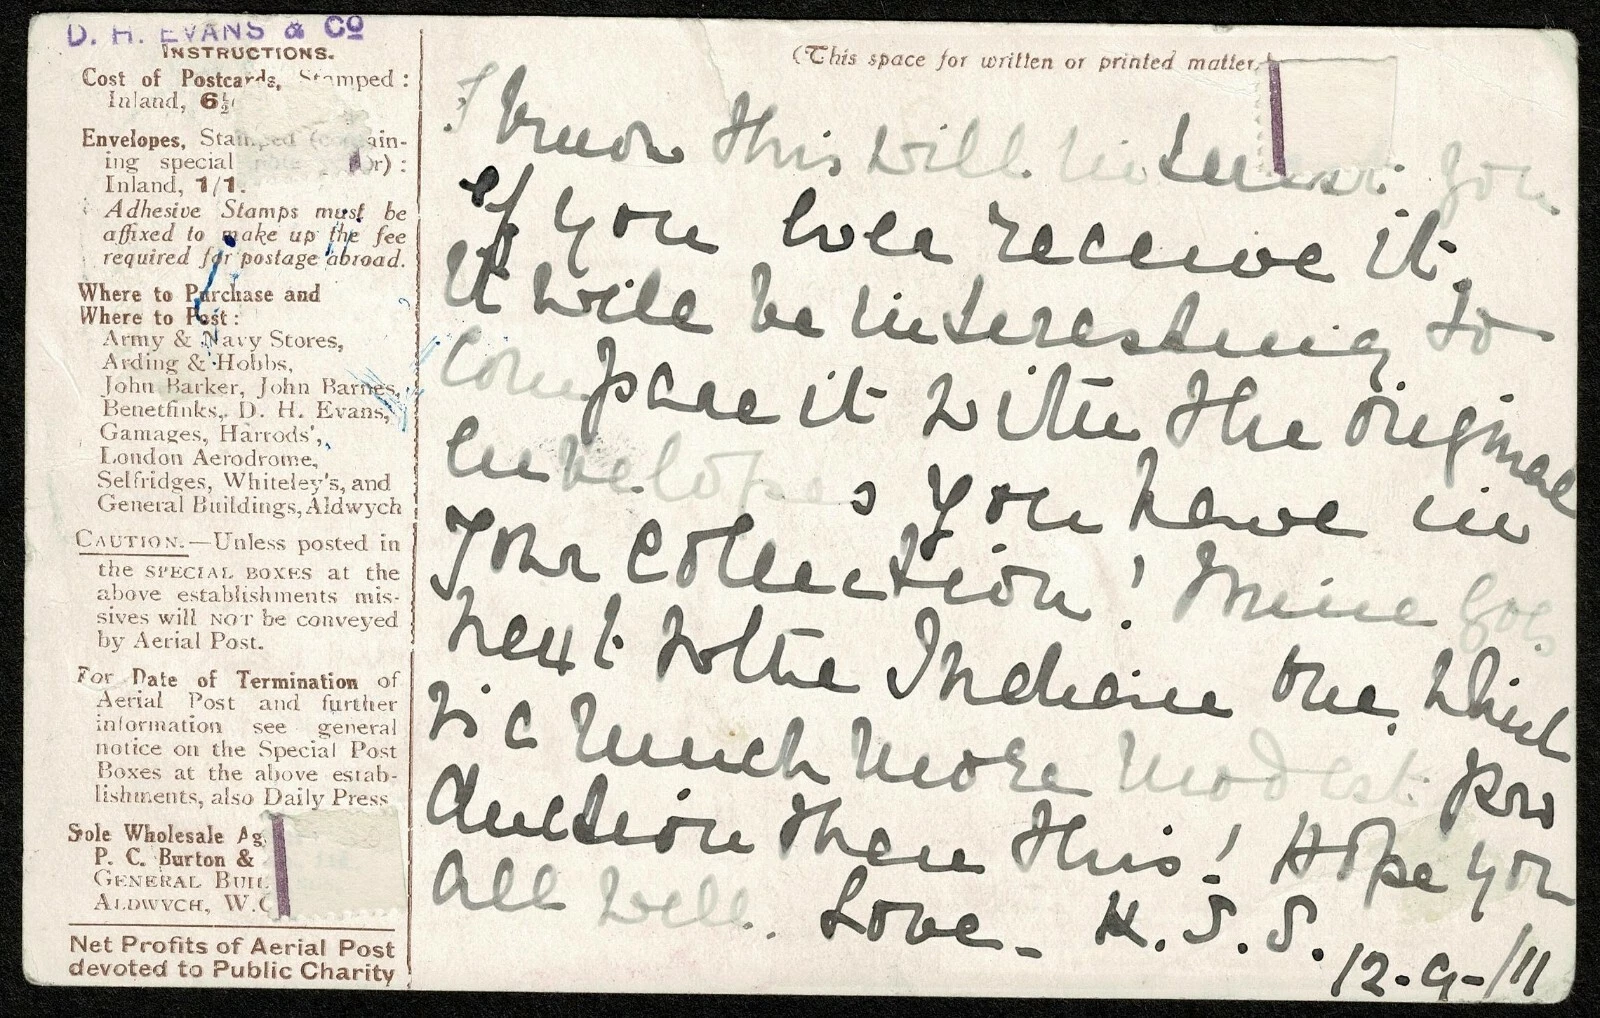 D. H. EVANS & Co
INSTRUCTIONS.
Cost of Postcards, Stamped:
Inland, 6½
Envelopes, Stamped (contain-
ing special
Inland, 1/1.
Adhesive Stamps must be
affixed to make up the fee
required for postage abroad.
Where to Purchase and
Where to Post:
Army & Navy Stores,
Arding & Hobbs,
John Barker, John Barnes,
Benetfinks, D. H. Evans,
Gamages, Harrods',
London Aerodrome,
Selfridges, Whiteley's, and
General Buildings, Aldwych
CAUTION.—Unless posted in
the SPECIAL BOXES at the
above establishments mis-
sives will NOT be conveyed
by Aerial Post.
For Date of Termination of
Aerial Post and further
information see general
notice on the Special Post
Boxes at the above estab-
lishments, also Daily Press
Sole Wholesale Ag
P. C. Burton &
GENERAL BUIL
ALDWYCH, W.C
Net Profits of Aerial Post
devoted to Public Charity
(This space for written or printed matter.)
I know this will interest you
if you ever receive it.
It will be interesting to
compare it with the original
envelopes you have in
your collection! Mine goes
next to the Indian one, which
is a much more modest pro
duction than this! Hope you
all well. Love - H. S. S.
12-9-/11